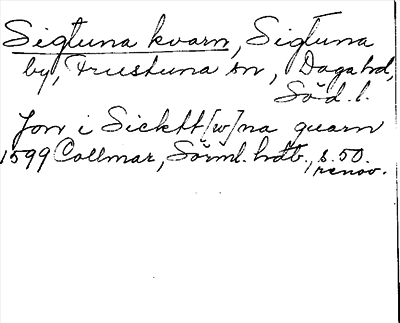 Sigtuna kvarn, Sigtuna
by, Frustuna sn, Daga hd,
Söd. l.
Jon i Sicktt[w]na quarn
1599 Collmar, Sörml. hdb., s. 50.
renov.